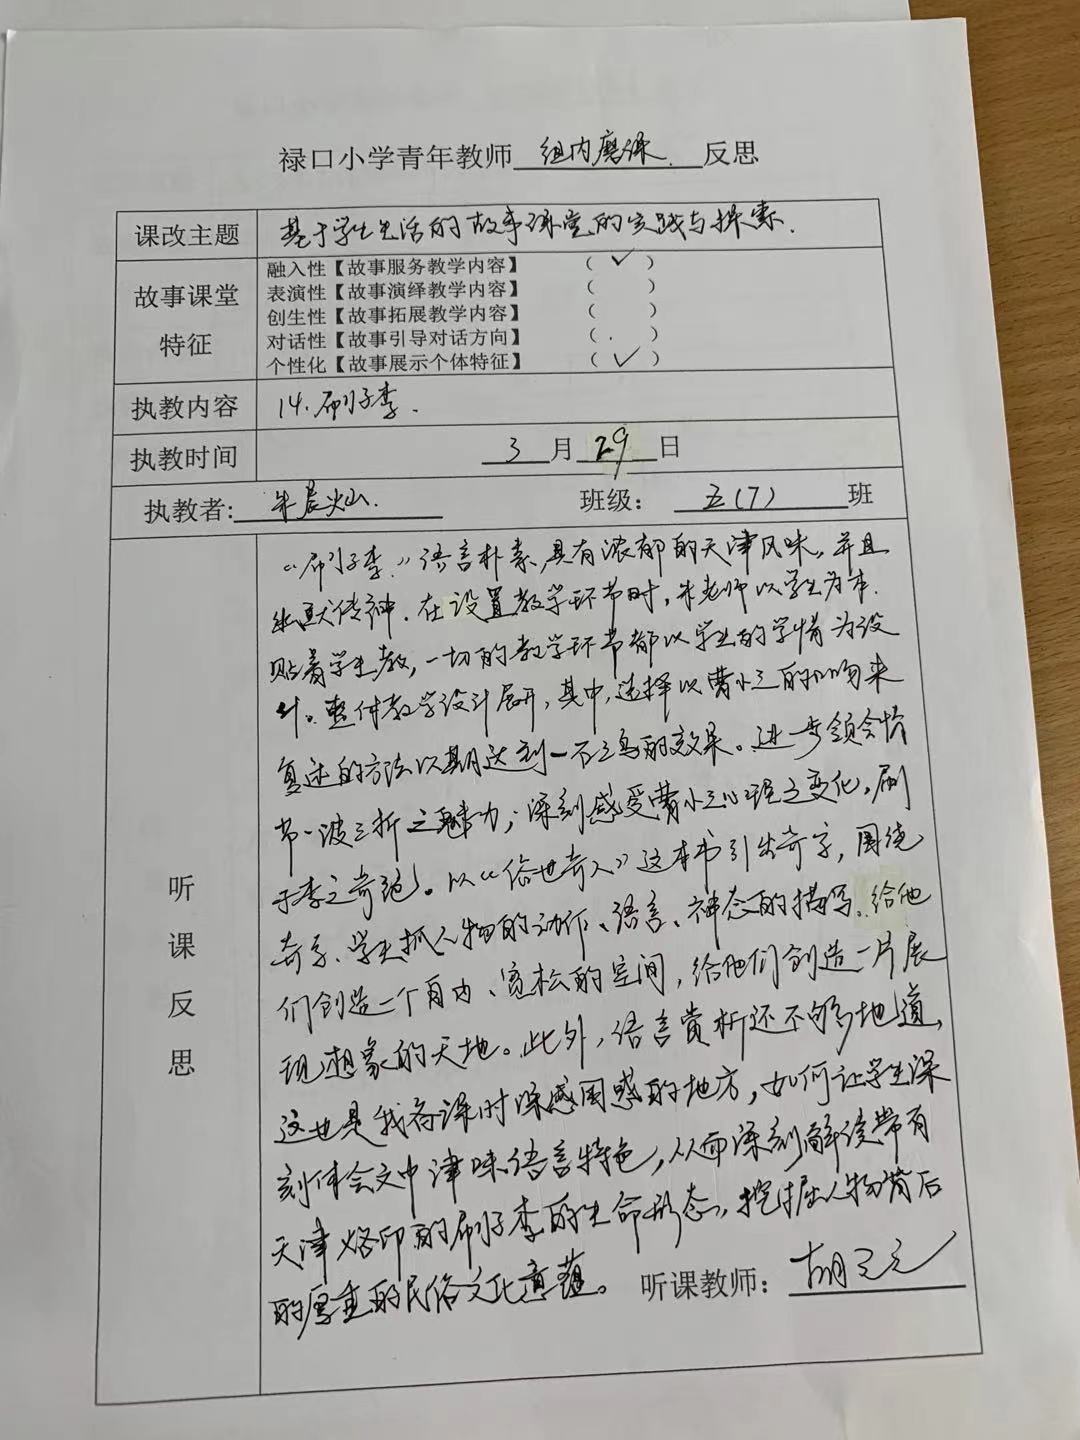 禄口小学青年教师 组内磨课. 反思
课改主题 基于学生生活的故事课堂的实践与探索.
故事课堂特征
融入性【故事服务教学内容】 （ ✓ ）
表演性【故事演绎教学内容】 （ ）
创生性【故事拓展教学内容】 （ ）
对话性【故事引导对话方向】 （ . ）
个性化【故事展示个体特征】 （ ✓ ）
执教内容 14. 刷子李.
执教时间 3 月 29 日
执教者: 朱晨 班级： 五(7) 班
听课反思
“刷子李”语言朴素,具有浓郁的天津风味,并且
幽默传神.在设置教学环节时,朱老师以学生为本.
贴着学生教,一切的教学环节都以学生的学情为设
计。整体教学设计展开,其中,选择以曹小三的口吻来
复述的方法以期达到一石二鸟的效果。进一步领会情
节一波三折之魅力;深刻感受曹小三心理之变化,刷
子李之奇绝。以《俗世奇人》这本书引出奇字,围绕
奇字、学生抓人物的动作、语言、神态的描写。给他
们创造一个自由、宽松的空间,给他们创造一片展
现想象的天地。此外,语言赏析还不够地道,
这也是我备课时深感困惑的地方,如何让学生深
刻体会文中津味语言特色,从而深刻解读带有
天津烙印的刷子李的生命形态,挖掘人物背后
的厚重的民俗文化意蕴。 听课教师：